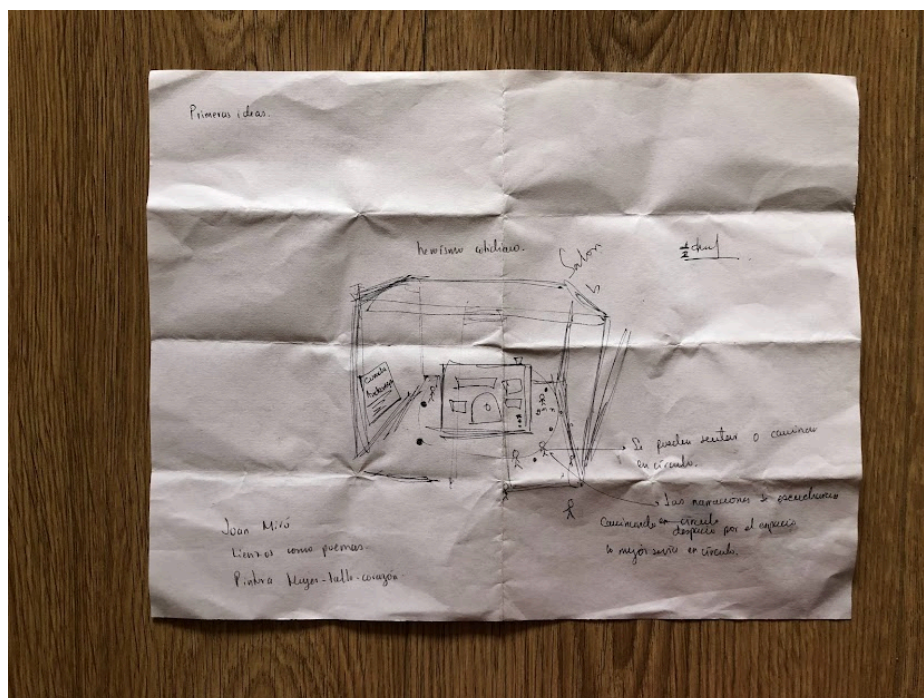 Primeras ideas.
heroísmo cotidiano.
Salón
Se pueden sentar o caminar
en círculo.
Las narraciones se escucharán
Caminando en círculo
despacio por el espacio
lo mejor sería en círculo.
Joan Miró
Lienzos como poemas.
Pintura Mujer-tallo-corazón.